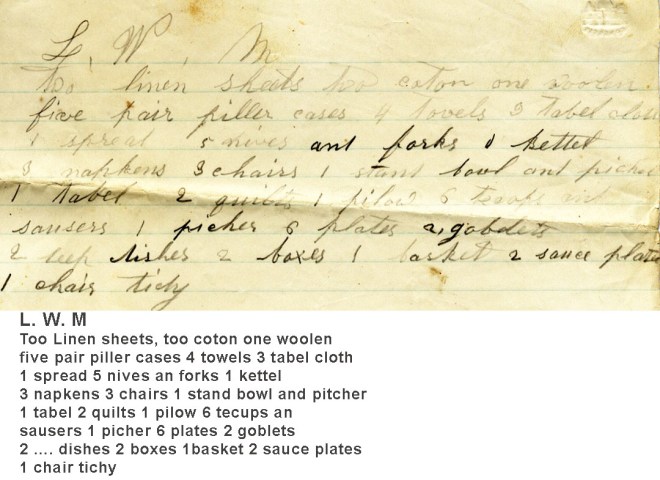 L. W. M
too linen sheets too coton one woolen.
five pair piller cases 4 towels 3 tabel cloth
1 spread 5 nives ant forks 1 kettel
3 napkens 3 chairs 1 stant bowl ant picher
1 tabel 2 quilts 1 pilow 6 tecups
sausers 1 picher 6 plates 2 gobelets
2 dishes 2 boxes 1 basket 2 sauce plates
1 chair tidy
L. W. M
Too Linen sheets, too coton one woolen
five pair piller cases 4 towels 3 tabel cloth
1 spread 5 nives an forks 1 kettel
3 napkens 3 chairs 1 stand bowl and pitcher
1 tabel 2 quilts 1 pilow 6 tecups an
sausers 1 picher 6 plates 2 goblets
2 .... dishes 2 boxes 1basket 2 sauce plates
1 chair tichy